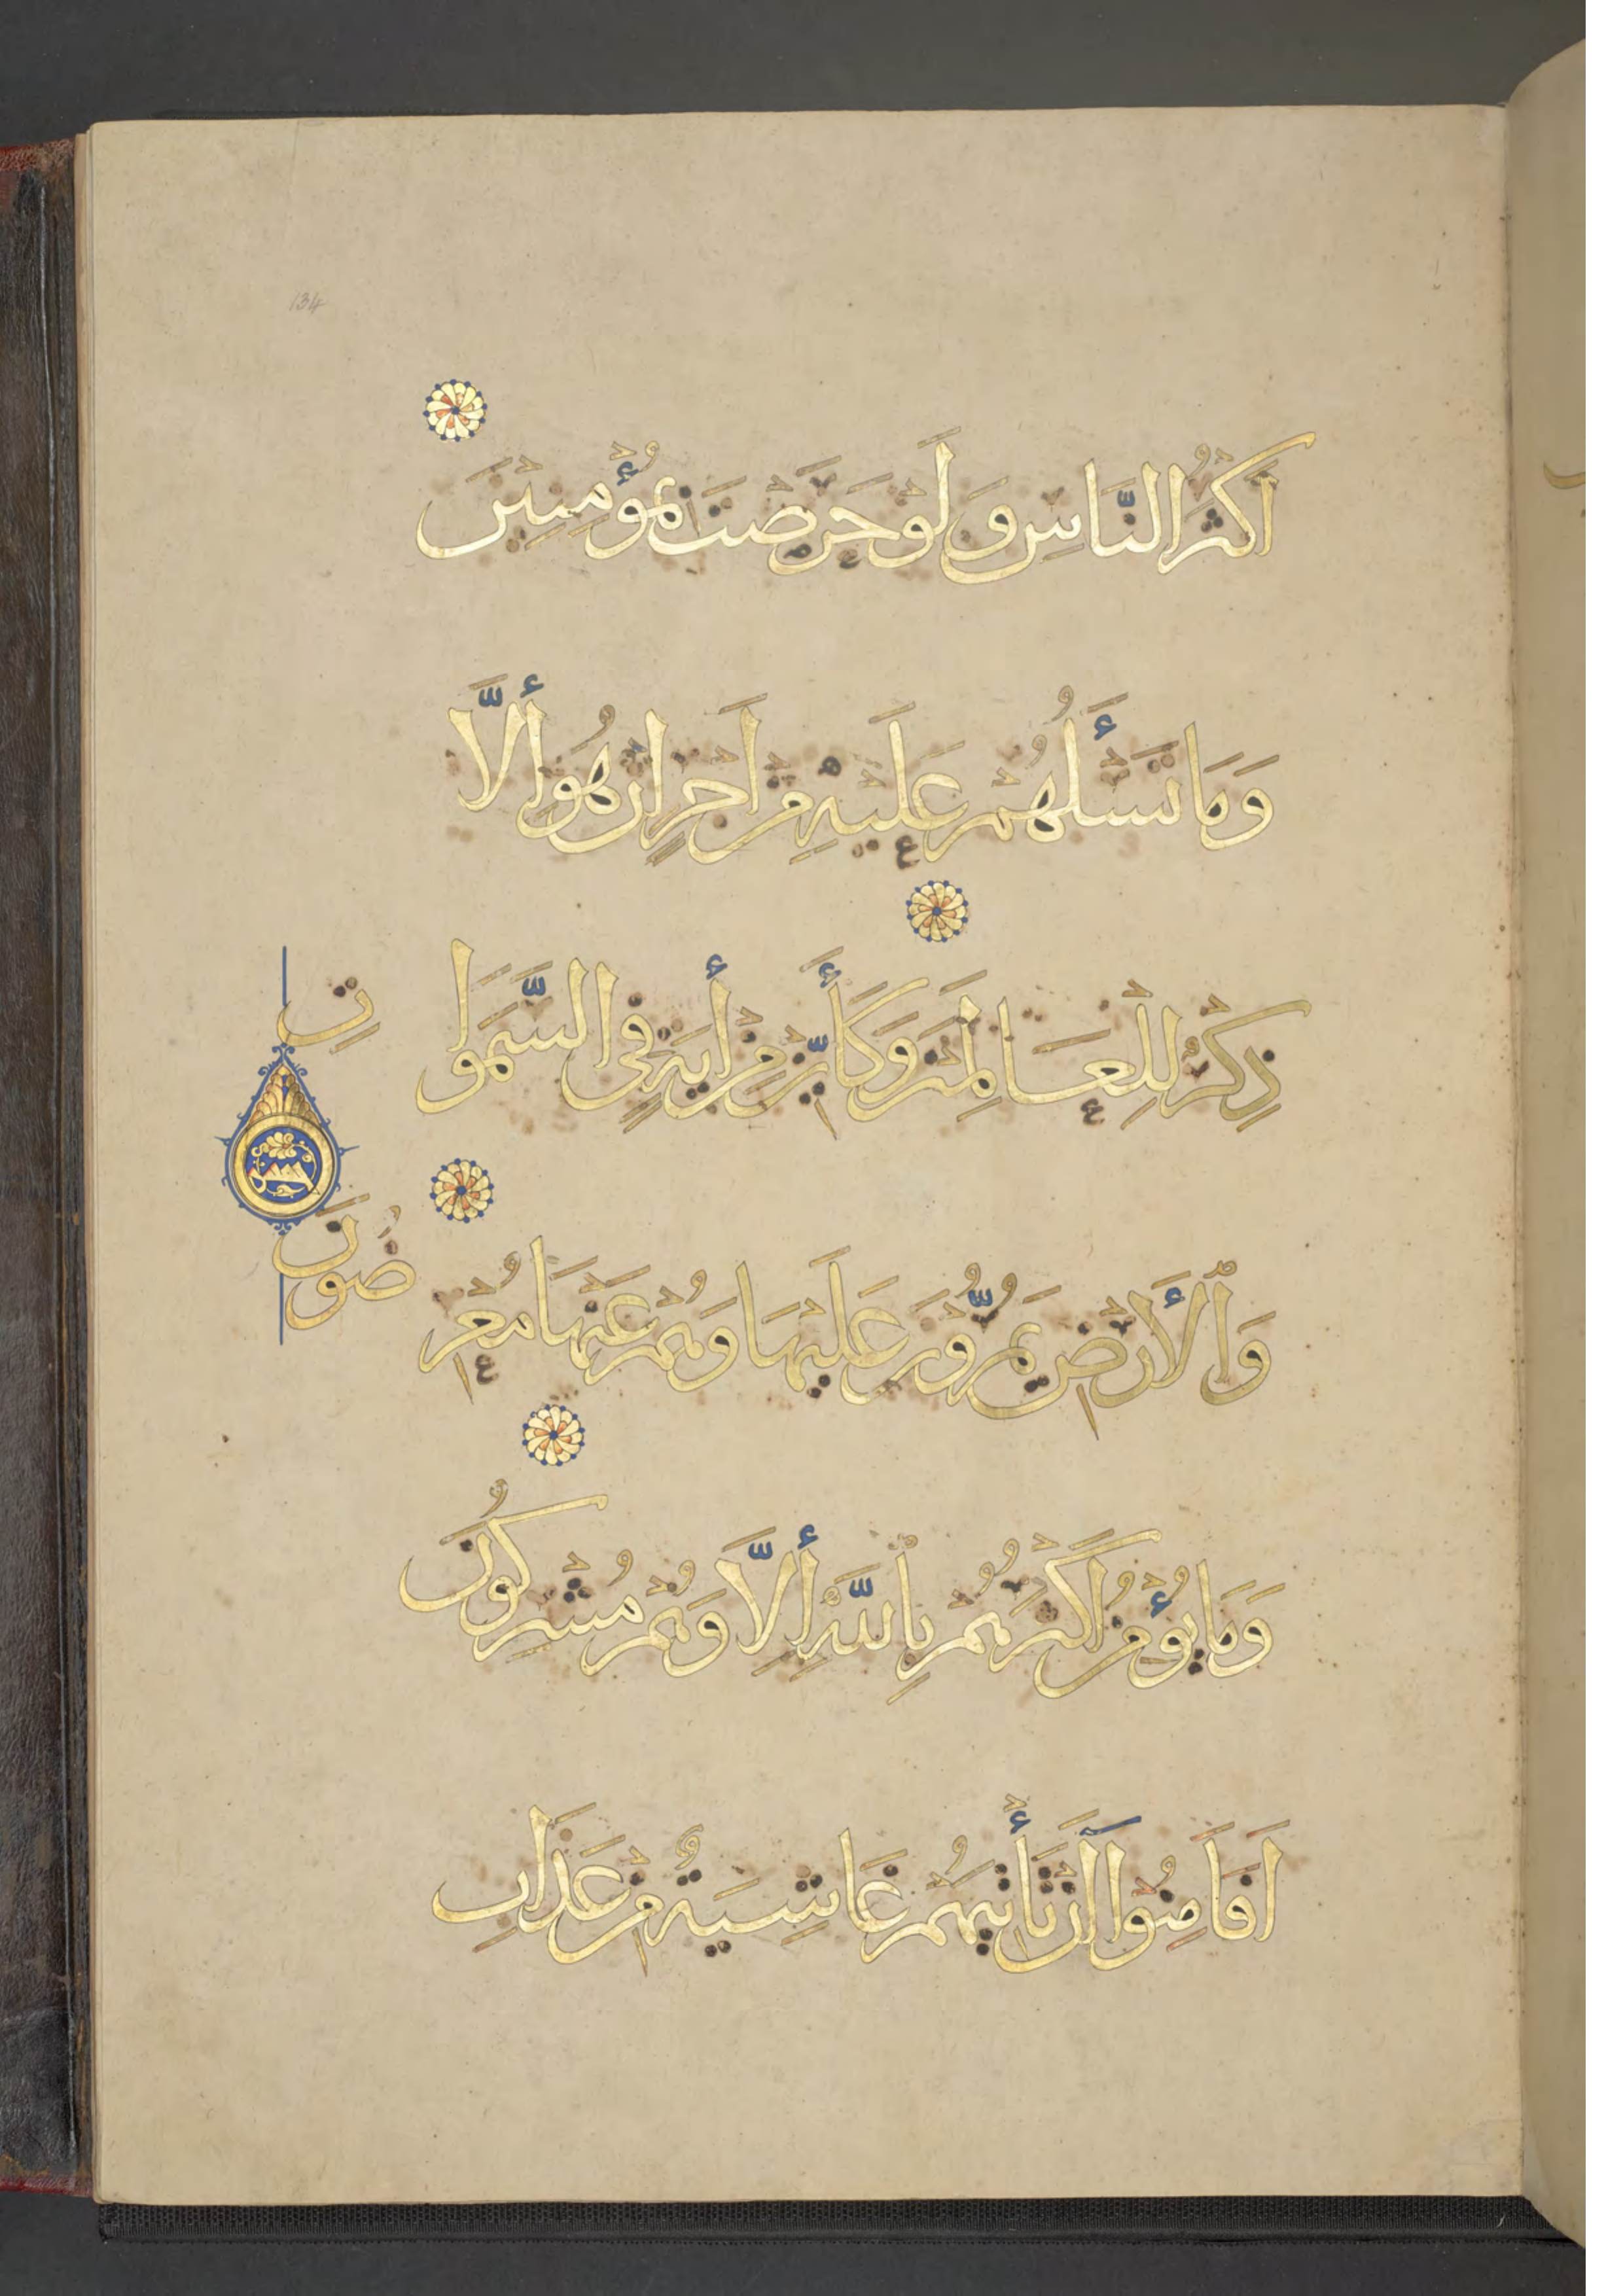 134
أَكْثَرُ النَّاسِ وَلَوْ حَرَصْتَ بِمُؤْمِنِينَ
وَمَا تَسْأَلُهُمْ عَلَيْهِ مِنْ أَجْرٍ إِنْ هُوَ إِلَّا
ذِكْرٌ لِلْعَالَمِينَ وَكَأَيِّنْ مِنْ آيَةٍ فِي السَّمَوَاتِ
وَالْأَرْضِ يَمُرُّونَ عَلَيْهَا وَهُمْ عَنْهَا مُعْرِضُونَ
وَمَا يُؤْمِنُ أَكْثَرُهُمْ بِاللَّهِ إِلَّا وَهُمْ مُشْرِكُونَ
أَفَأَمِنُوا أَنْ تَأْتِيَهُمْ غَاشِيَةٌ مِنْ عَذَابِ